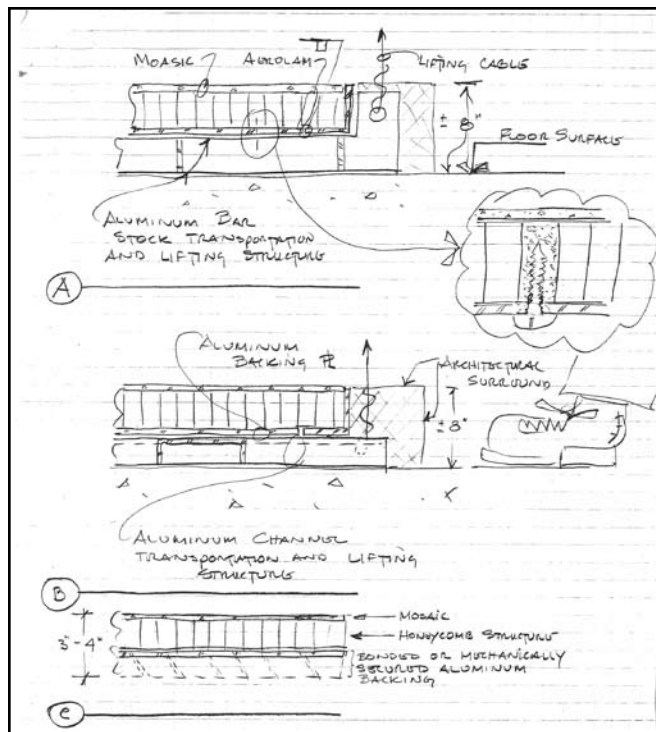 MOASIC
AEROLAM
LIFTING CABLE
± 8"
FLOOR SURFACE
ALUMINUM BAR
STOCK TRANSPORTATION
AND LIFTING STRUCTURE
A
ALUMINUM
BACKING PL
ARCHITECTURAL
SURROUND
±8"
ALUMINUM CHANNEL
TRANSPORTATION AND LIFTING
STRUCTURE
B
3"-4"
MOSAIC
HONEYCOMB STRUCTURE
BONDED OR MECHANICALLY
SECURED ALUMINUM
BACKING
C